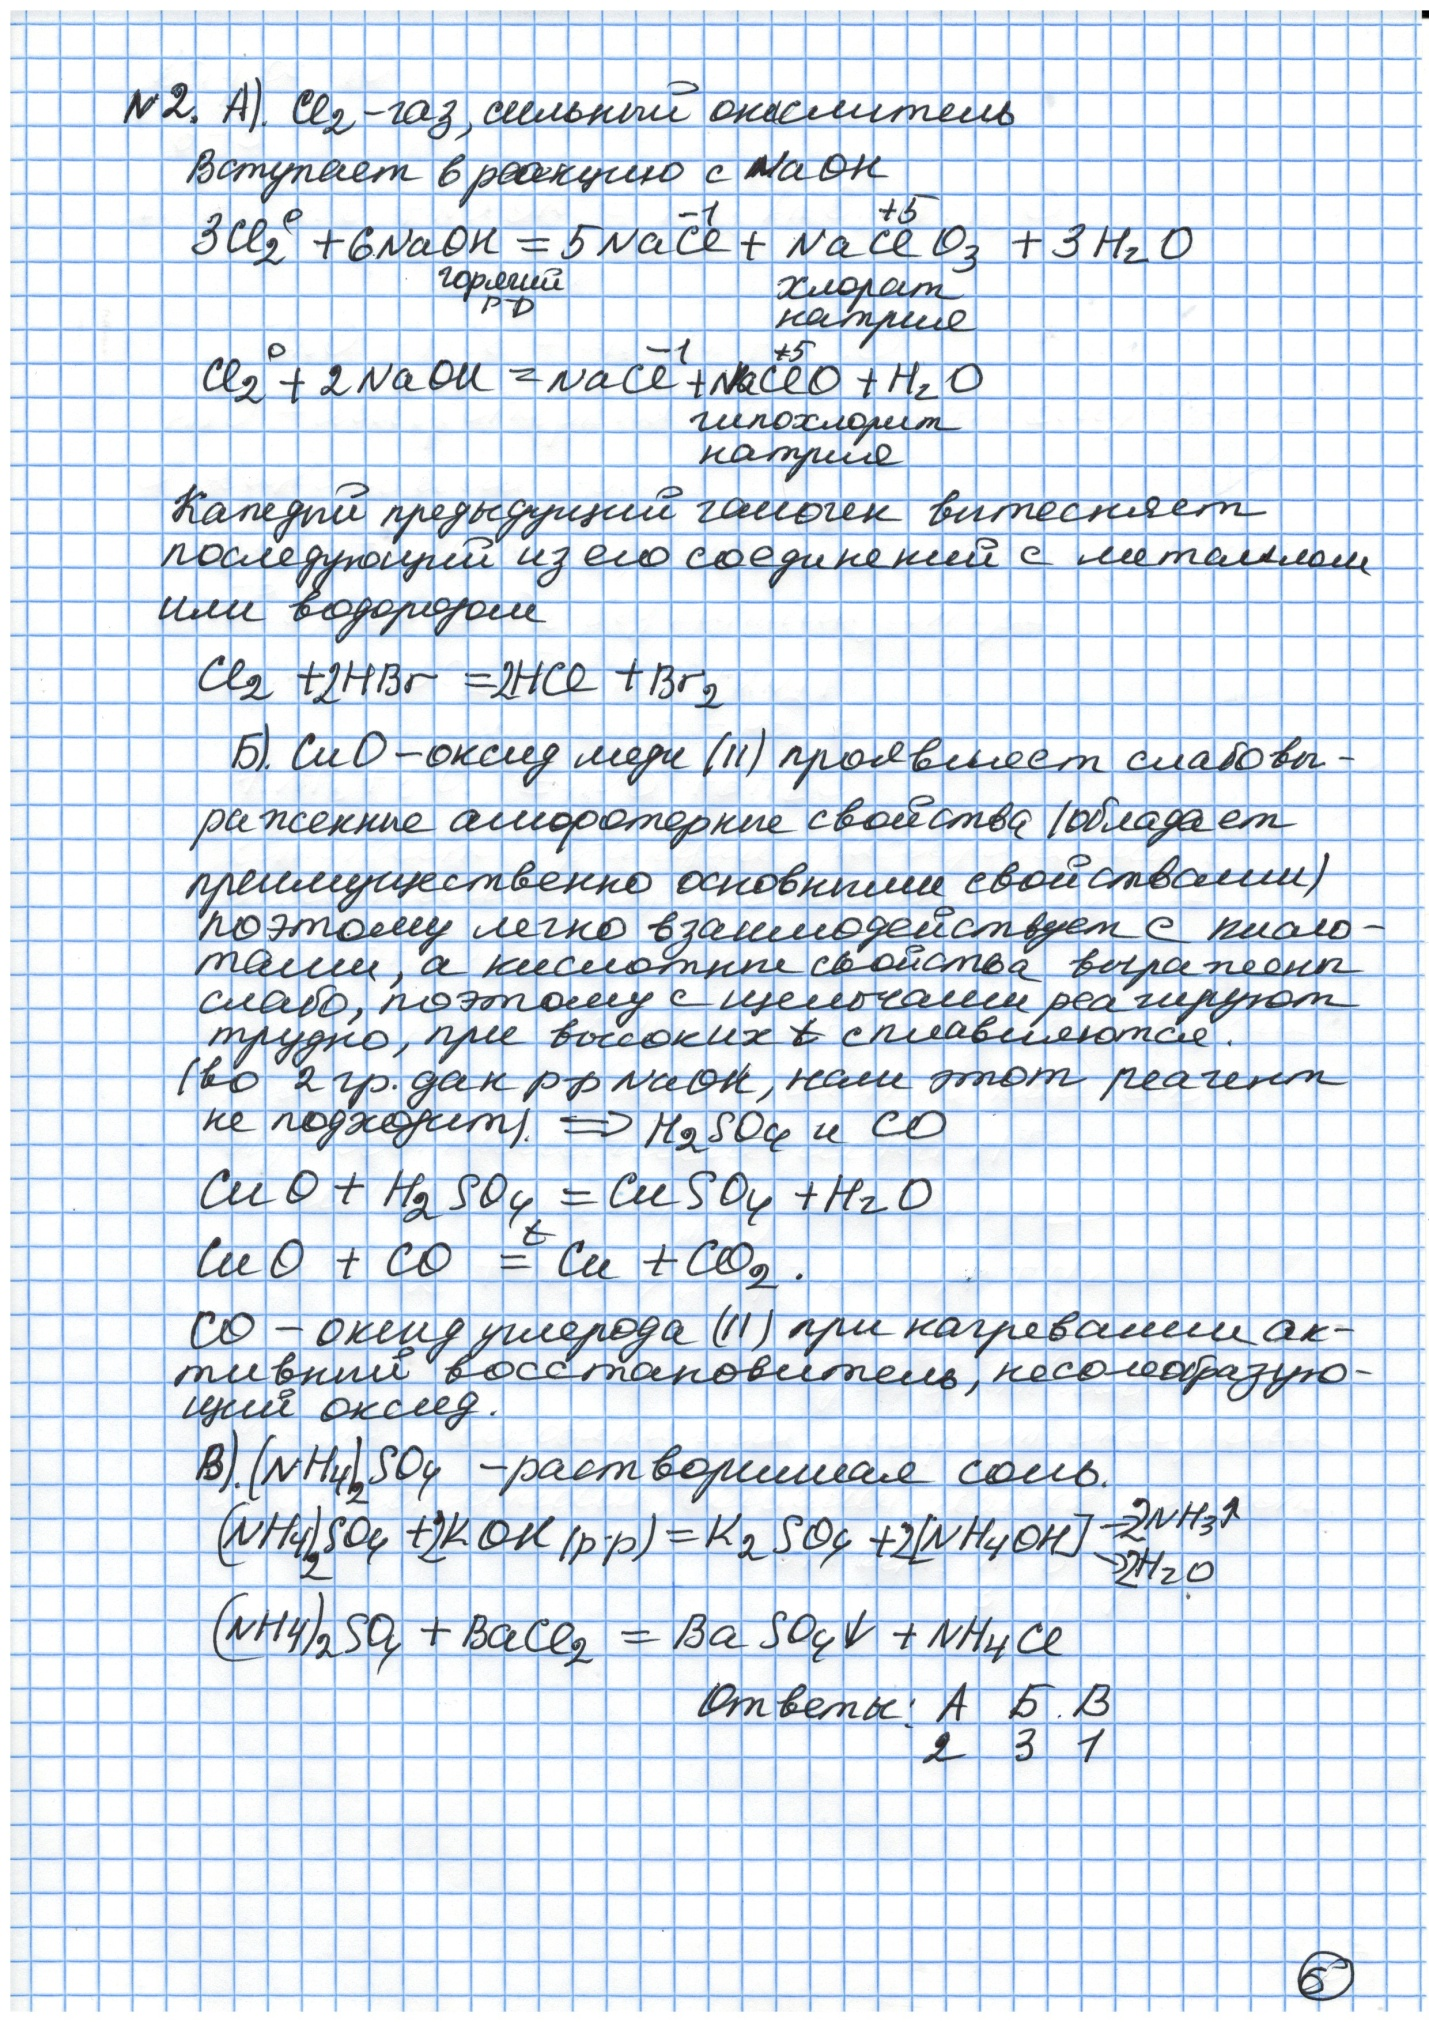 №2. А). Cl2 – газ, сильный окислитель
Вступает в реакцию с NaOH
3Cl2⁰ + 6NaOH = 5NaCl⁻¹ + NaCl⁺⁵O3 + 3H2O
горячий хлорат
р-р натрия
Cl2⁰ + 2NaOH = NaCl⁻¹ + NaCl⁺⁵O + H2O
гипохлорит
натрия
Каждый предыдущий галоген вытесняет
последующий из его соединений с металлом
или водородом
Cl2 + 2HBr = 2HCl + Br2
Б). CuO – оксид меди (II) проявляет слабовы-
раженные амфотерные свойства (обладает
преимущественно основными свойствами)
поэтому легко взаимодействует с кисло-
тами, а кислотные свойства выражены
слабо, поэтому с щелочами реагируют
трудно, при высоких t сплавляются.
(во 2 гр. дан р-р NaOH, нам этот реагент
не подходит). => H2SO4 и CO
CuO + H2SO4 = CuSO4 + H2O
CuO + CO =ᵗ Cu + CO2.
CO – оксид углерода (II) при нагревании ак-
тивный восстановитель, несолеобразую-
щий оксид.
В). (NH4)2SO4 – растворимая соль.
(NH4)2SO4 + 2KOH (р-р) = K2SO4 + 2[NH4OH] → 2NH3↑
→ 2H2O
(NH4)2SO4 + BaCl2 = BaSO4↓ + NH4Cl
Ответы: А Б В
2 3 1